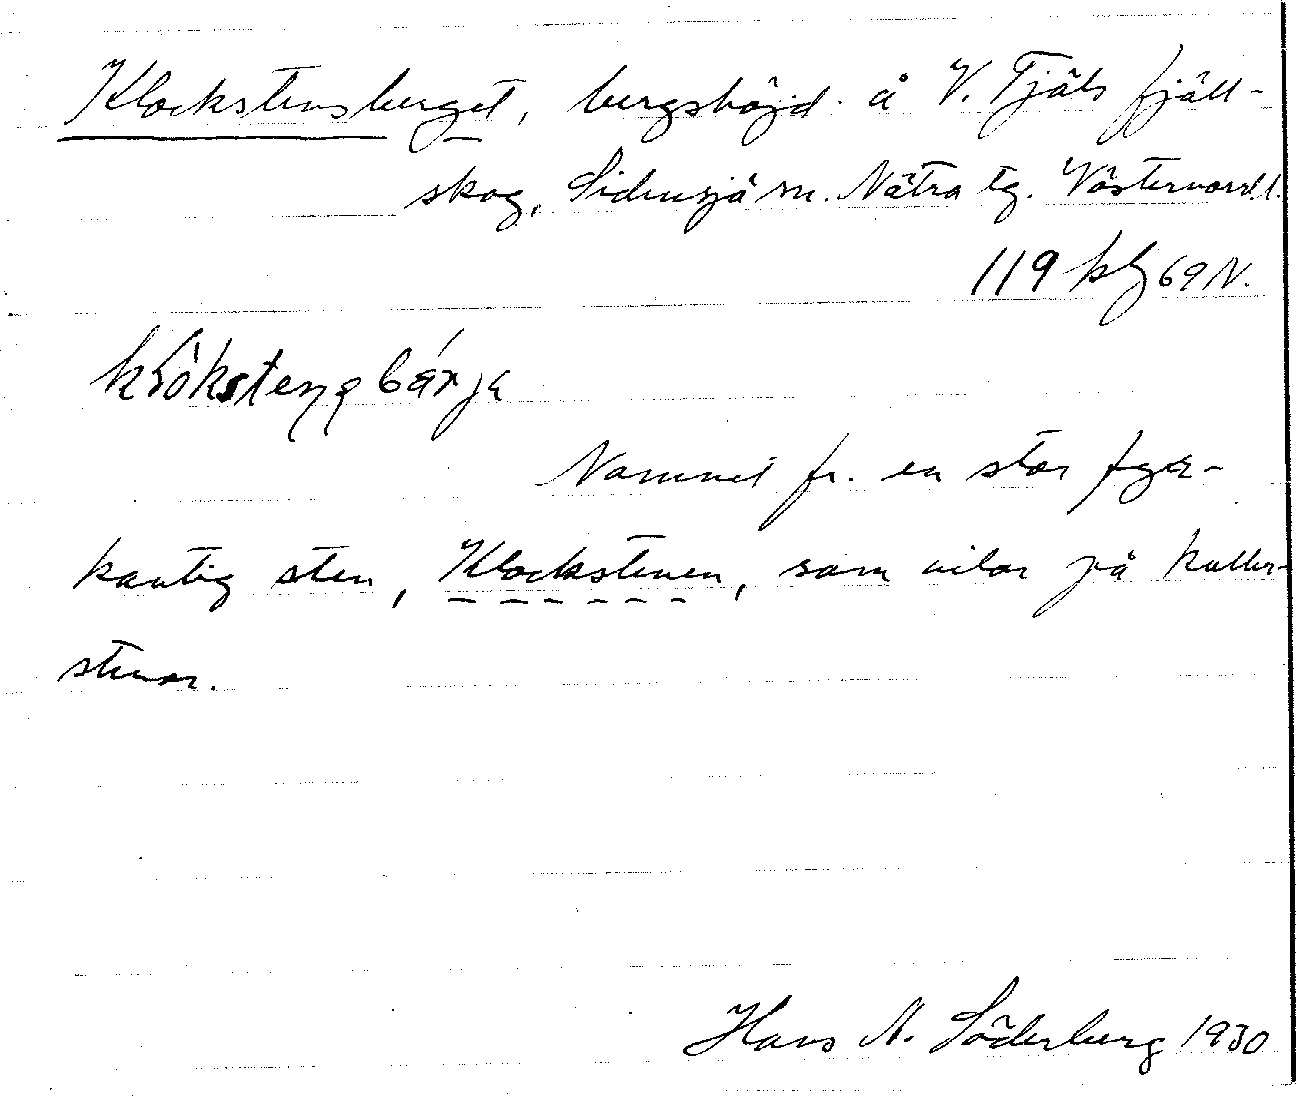 Klockstensberget, bergshöjd å V. Tjäls fjäll-
skog, Sidensjö sn. Nätra tg. Västernorrl. l.
119 69 N.
Namnet fr. en stor fyr-
kantig sten, Klockstenen, som vilar på kuller-
stenar.
Hans N. Söderberg 1930